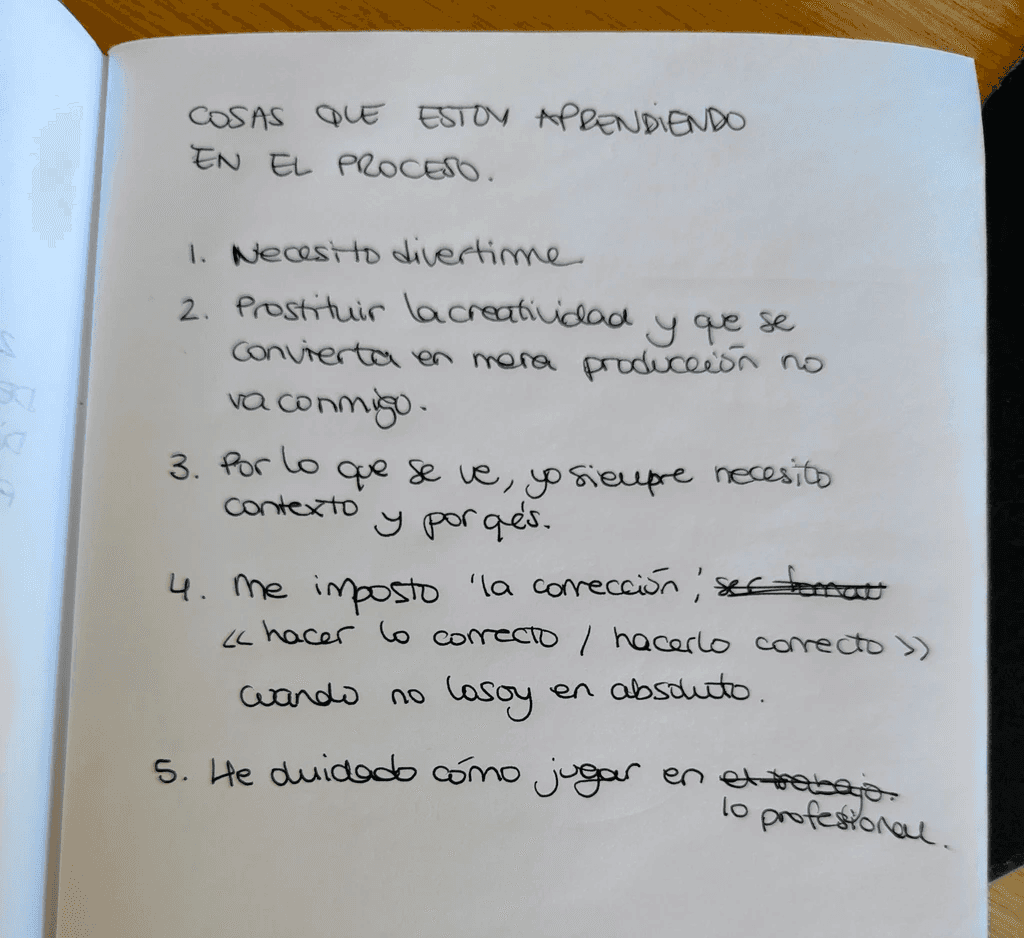 COSAS QUE ESTOY APRENDIENDO
EN EL PROCESO.
1. Necesito divertirme
2. Prostituir la creatividad y que se
convierta en mera producción no
va conmigo.
3. Por lo que se ve, yo siempre necesito
contexto y por qés.
4. Me imposto 'la corrección',
<< hacer lo correcto / hacerlo correcto >>
cuando no lo soy en absoluto.
5. He duidado cómo jugar en el trabajo.
lo profesional.